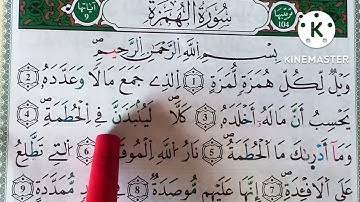 آياتها ٩ سُورَةُ الْهُمَزَةِ ١٠٤
KINEMASTER
بِسْمِ اللَّهِ الرَّحْمَٰنِ الرَّحِيمِ
وَيْلٌ لِّكُلِّ هُمَزَةٍ لُّمَزَةٍ ١ الَّذِي جَمَعَ مَالًا وَعَدَّدَهُ ٢
يَحْسَبُ أَنَّ مَالَهُ أَخْلَدَهُ ٣ كَلَّا لَيُنْبَذَنَّ فِي الْحُطَمَةِ ٤
وَمَا أَدْرَاكَ مَا الْحُطَمَةُ ٥ نَارُ اللَّهِ الْمُوقَدَةُ ٦ الَّتِي تَطَّلِعُ
عَلَى الْأَفْئِدَةِ ٧ إِنَّهَا عَلَيْهِم مُّؤْصَدَةٌ ٨ فِي عَمَدٍ مُّمَدَّدَةٍ ٩